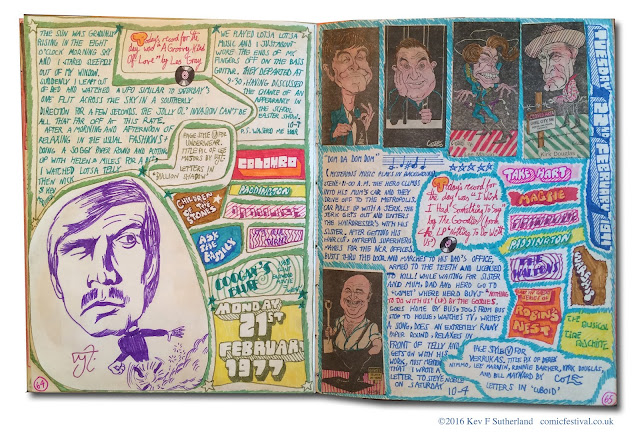 THE SUN WAS GRADUALLY
RISING IN THE EIGHT
O'CLOCK MORNING SKY
AND I STARED SLEEPILY
OUT OF MY WINDOW.
SUDDENLY I LEAPT OUT
OF BED AND WATCHED A UFO SIMILAR TO SATURDAY'S
ONE FLIT ACROSS THE SKY IN A SOUTHERLY
DIRECTION FOR A FEW SECONDS. THE JOLLY OL' INVASION CAN'T BE
ALL THAT FAR OFF AT THIS RATE.
AFTER A MORNING AND AFTERNOON OF
RELAXING IN THE USUAL FASHION
DOING A 30 GBP PAPER ROUND AND PUTTING
UP WITH HELEN & MILES FOR A
WATCHED LOTSA TELLY
THEN NICK
Today's record for
the day was "A Groovy Kind
Of Love" by Les Gray
WE PLAYED LOTSA LOTSA
MUSIC AND I JUST ABOUT
WORE THE ENDS OF MY
FINGERS OFF ON THE BASS
GUITAR. THEY DEPARTED AT
9.30 HAVING DISCUSSED
THE CHANCE OF AN
APPEARANCE IN
THE SCHOOL
EASTER SHOW.
10-4
P.S. WASHED ME HAIR
PAGE STYLE FOR
UNDERWEAR.
TITLE PIC OF LEE
LETTERS IN
"BULLION SHADOW"
COLUMBO
PADDINGTON
CHILDREN OF THE STONES
ASK THE FAMILY
COOGAN'S BLUFF
MONDAY
21ST
FEBRUARY
1977
64
COZE
Kirk Douglas
TUESDAY 22ND FEBRUARY 1977
"DOM DA DOM DOM"
(MYSTERIOUS MUSIC PLAYS IN BACKGROUND)
SCENE: 9.00 A.M. THE HERO CLIMBS
INTO HIS MUM'S CAR AND THEY
DRIVE OFF TO THE METROPOLIS.
CAR PULLS UP WITH A JERK. THE
JERK GETS OUT AND ENTERS
THE HAIRDRESSER'S WITH HIS
SISTER. AFTER GETTING HIS
HAIR CUT, INTREPID SUPERHERO
MAKES FOR THE NICK OFFICES.
BUSTS THRU THE DOOR AND MARCHES TO HIS DAD'S OFFICE,
ARMED TO THE TEETH AND LICENSED
TO KILL! WHILE WAITING FOR SISTER
AND MUM, DAD AND HERO GO TO
"COMET" WHERE HERO BUYS "NOTHING
TO DO WITH US" (LP) BY THE GOODIES.
GOES HOME BY BUS, JOGS FROM BUS
STOP TO HOUSE, WATCHES TV, WRITES
A SONG, DOES AN EXTREMELY RAINY
PAPER ROUND, RELAXES IN
FRONT OF TELLY AND
GETS ON WITH HIS
WORK. JUST REMEMBERED
THAT I WROTE A
LETTER TO STEVE
ON SATURDAY 10-4
Today's record for
the day was "I Wish
I Had Something To Say"
by The Goodies from
LP "Nothing To Do With
Us"
TAKE HART
MAGPIE
PADDINGTON
THE WALTONS
ROBIN'S NEST
THE MUSICAL
TIME MACHINE
PAGE STYLE FOR
VERRUKAS. TITLE PIX OF DEREK
NIMMO, LEE MARVIN, RONNIE BARKER, KIRK DOUGLAS
AND BILL MAYNARD BY COZE
LETTERS IN "CUBOID"
65
©2016 Kev F Sutherland comicfestival.co.uk